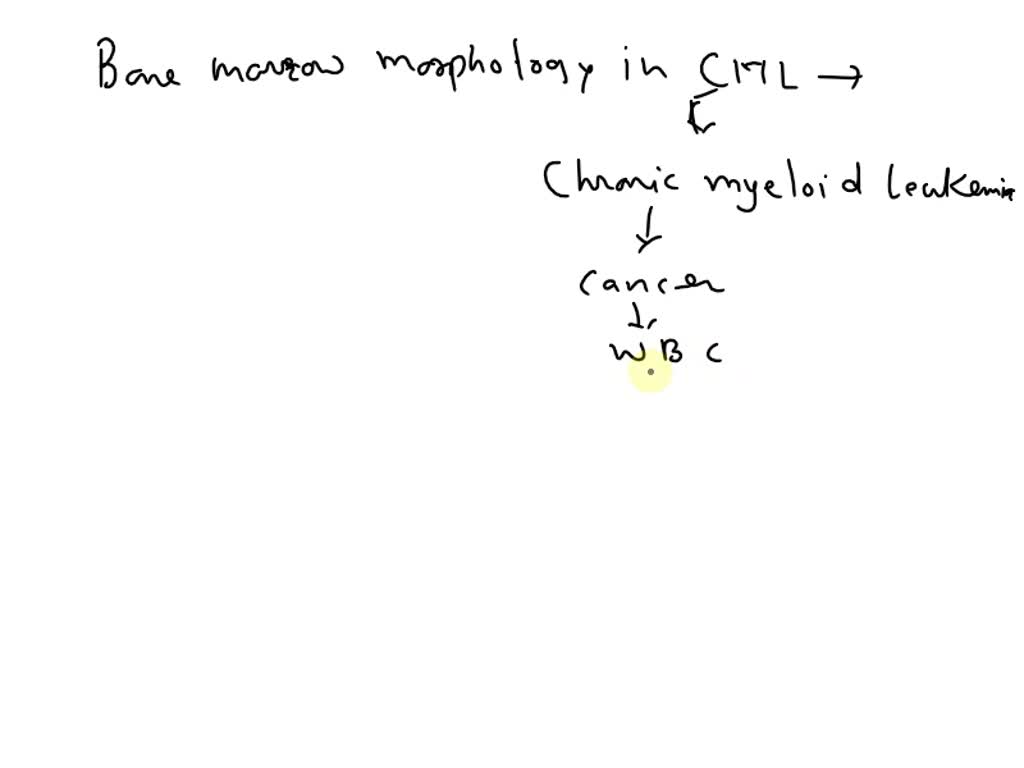 Bone marrow morphology in CML →
Chronic myeloid leukemia
↓
Cancer
↓
WBC